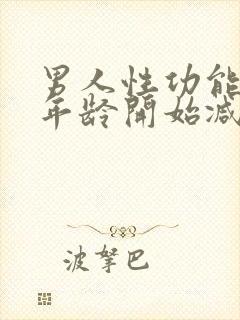 男人性功能
年龄開始减
波拏巴